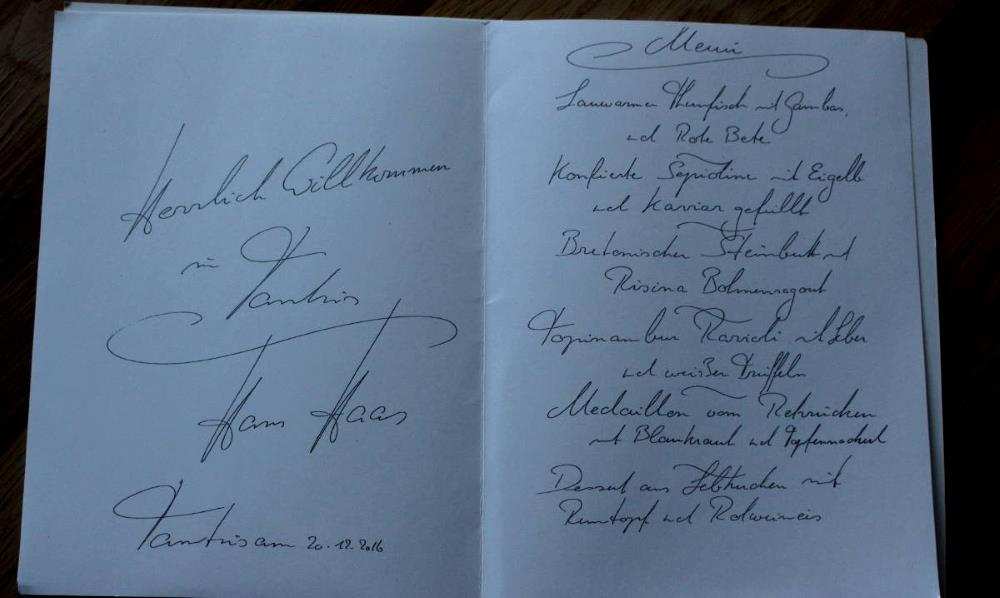 Herzlich Willkommen
im
Tantris
Hans Haas
Tantris am 20.12.2016
Menü
Lauwarmer Thunfisch mit Gambas,
und Rote Bete
Konfierte Sepioline mit Eigelb
und Kaviar gefüllt
Bretonischer Steinbutt mit
Risina Bohnenragout
Topinambur Ravioli mit Leber
und weißen Trüffeln
Medaillon vom Rehrücken
mit Blaukraut und Topfennockerl
Dessert aus Lebkuchen mit
Rumtopf und Rotweineis